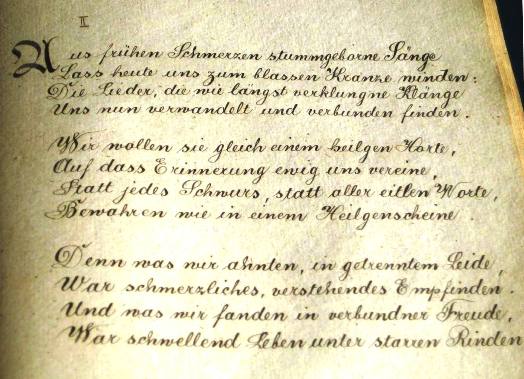 II
Aus frühen Schmerzen stummgeborne Sänge
Lass heute uns zum blassen Kranze winden:
Die Lieder, die wie längst verklungne Klänge
Uns nun verwandelt und verbunden finden.
Wir wollen sie gleich einem heilgen Horte,
Auf dass Erinnerung ewig uns vereine,
Statt jedes Schwurs, statt aller eitlen Worte,
Bewahren wie in einem Heilgenscheine.
Denn was wir ahnten, in getrenntem Leide,
War schmerzliches, verstehendes Empfinden.
Und was wir fanden in verbundner Freude,
War schwellend Leben unter starren Rinden